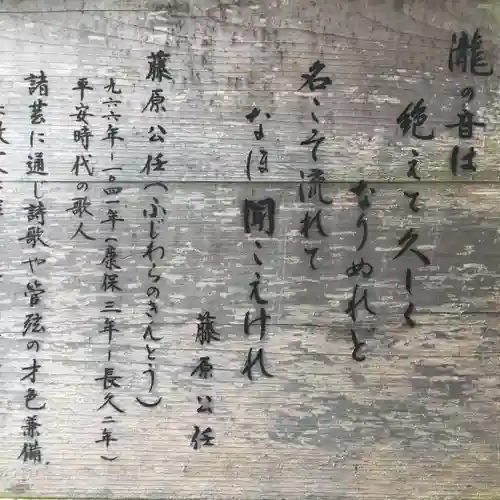 瀧の音は
絶えて久しく
なりぬれど
名こそ流れて
なほ聞こえけれ
藤原公任
藤原公任(ふじわらのきんとう)
九六六年ー一〇四一年(康保三年ー長久二年)
平安時代の歌人
諸芸に通じ詩歌や管弦の才色兼備。